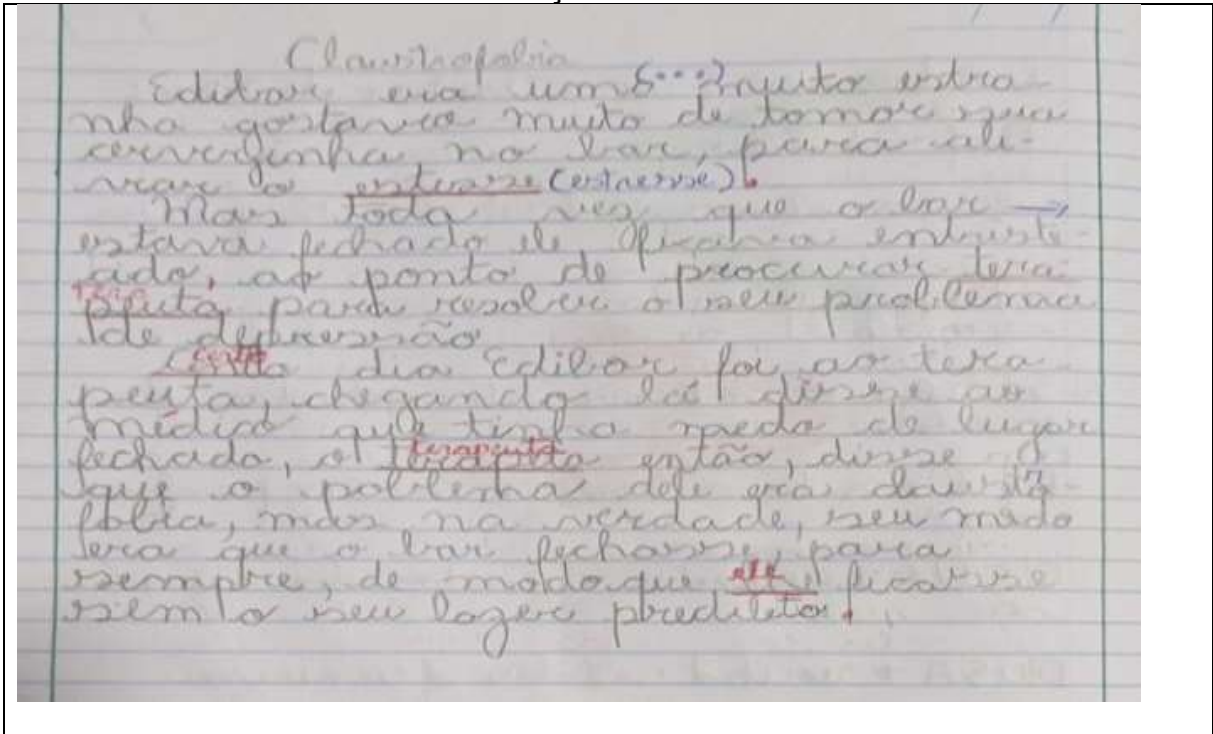 Claustrofobia
Edibar era um (...) muito estra
nha gostava muito de tomar sua
cervejinha, no bar, para ali-
viar o (estresse).
Mas toda vez que o bar →
estava fechado ele ficava entriste-
ado, ao ponto de procurar tera
peuta para resolver o seu problema
de depressão
Certo dia Edibar foi ao tera
peuta, chegando lá disse ao
médico que tinha medo de lugar
fechado, o terapeuta então, disse
que o dele era
mas, na verdade, seu medo
era que o bar fechasse, para
sempre, de modo que ele ficasse
sem o seu lazer predileto.